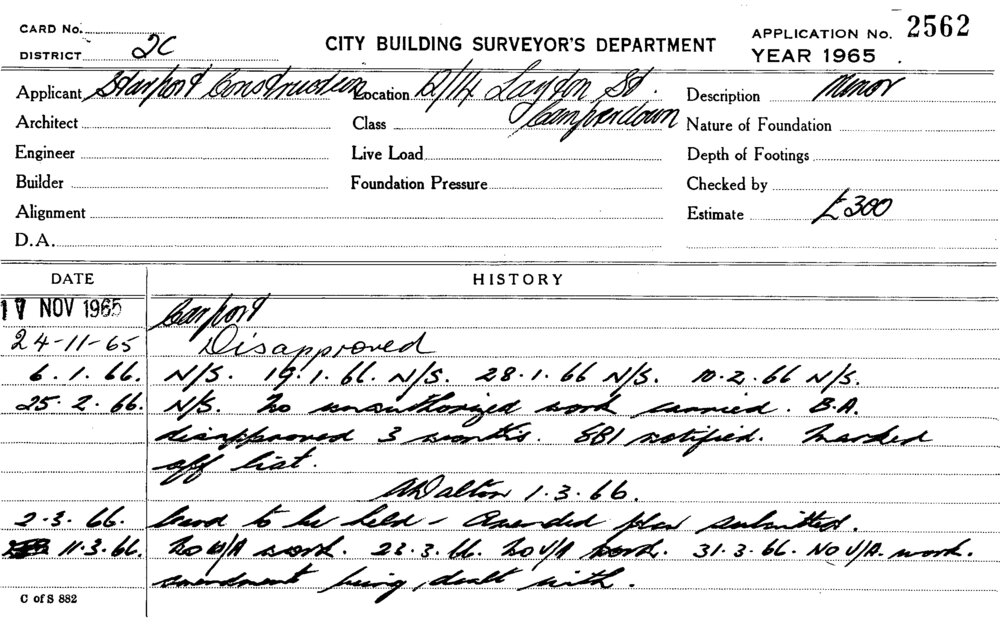 CARD No.
DISTRICT 2C
CITY BUILDING SURVEYOR'S DEPARTMENT
APPLICATION No. 2562
YEAR 1965
Applicant Construction Location 12/14 Layton St. Camperdown Description Minor
Architect Class Nature of Foundation
Engineer Live Load Depth of Footings
Builder Foundation Pressure Checked by
Alignment Estimate £300
D.A.
DATE HISTORY
17 NOV 1965 Carport
24-11-65 Disapproved
6.1.66. N/S. 19.1.66. N/S. 28.1.66 N/S. 10.2.66 N/S.
25.2.66. N/S. No unauthorized work carried. B.A.
disapproved 3 months. 881 notified. Marked
off list.
Dalton 1.3.66.
2.3.66. to be held - Amended plan submitted.
11.3.66. No U/A work. 23.3.66. No U/A work. 31.3.66. No U/A. work.
amendment being dealt with.
C of S 882